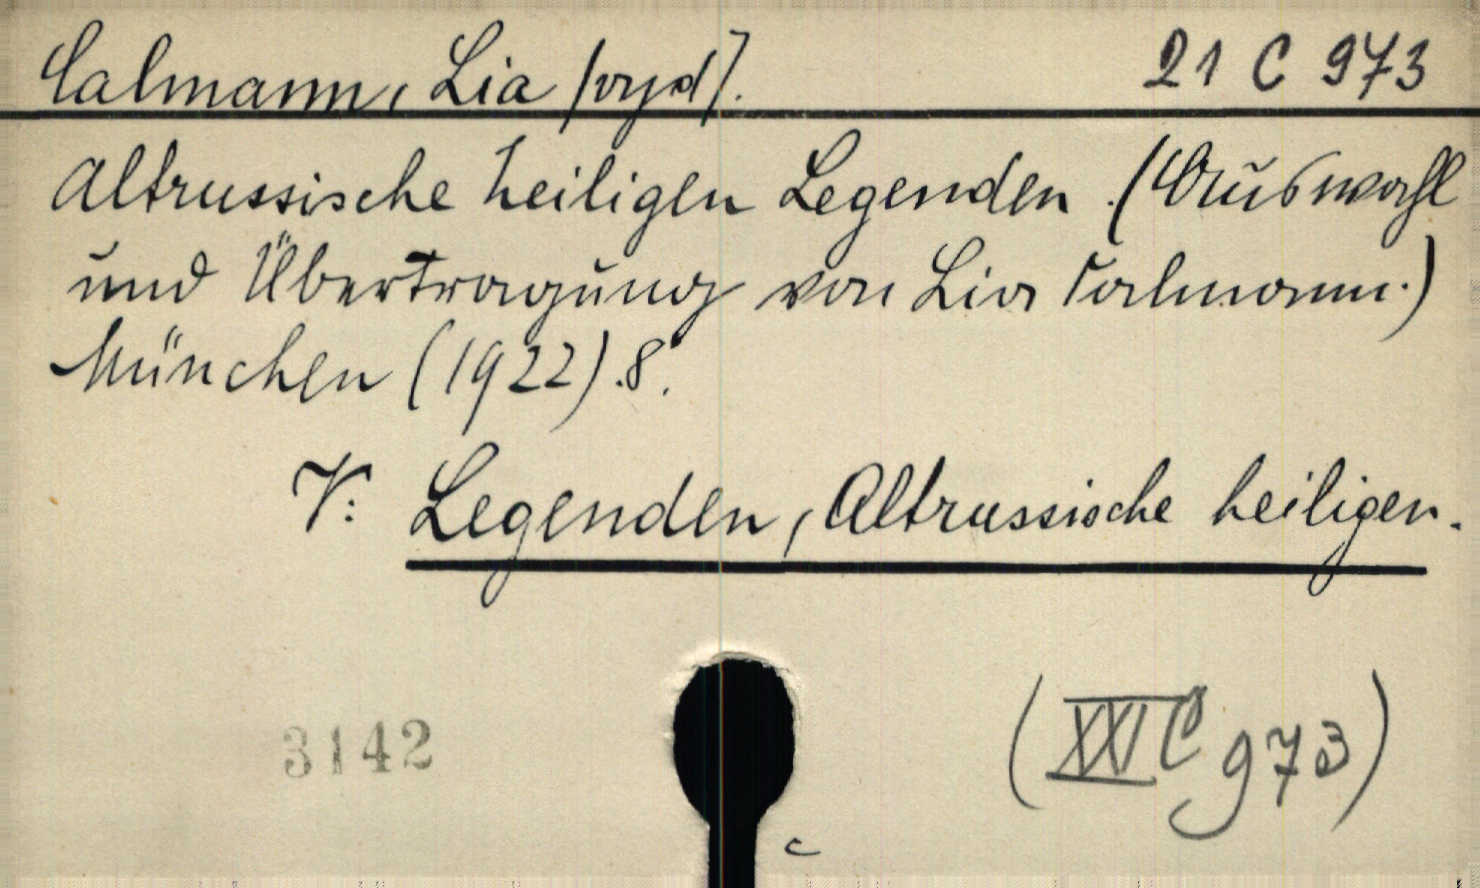 Calmann, Lia [vyd]. 21 C 973
Altrussische heiligen Legenden. (Auswahl
und Übertragung von Lia Calmann.)
München (1922). 8°.
V: Legenden, Altrussische heiligen.
3142
(XXI C 973)
c